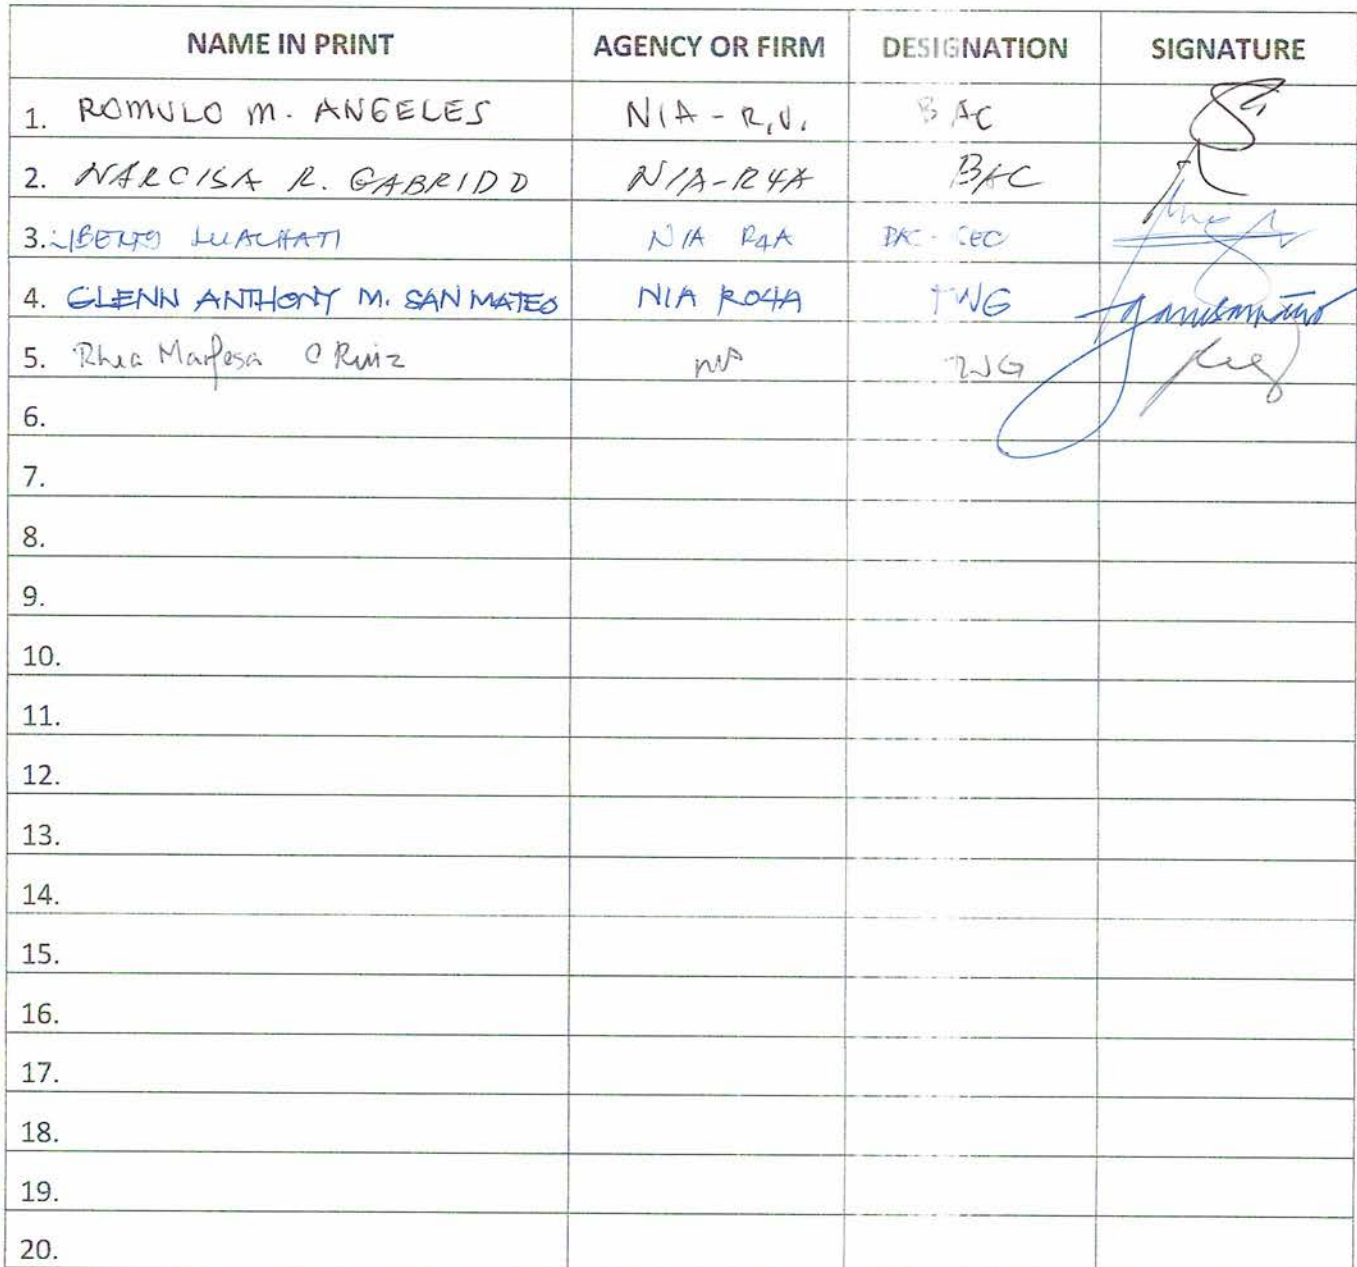 NAME IN PRINT AGENCY OR FIRM DESIGNATION SIGNATURE
1. ROMULO M. ANGELES NIA - R.IV. BAC
2. NARCISA R. GABRIDO NIA-R4A BAC
3. NIA R4A
4. GLENN ANTHONY M. SAN MATEO NIA RO4A TWG
5. Rhea C Ruiz NIA TWG
6.
7.
8.
9.
10.
11.
12.
13.
14.
15.
16.
17.
18.
19.
20.